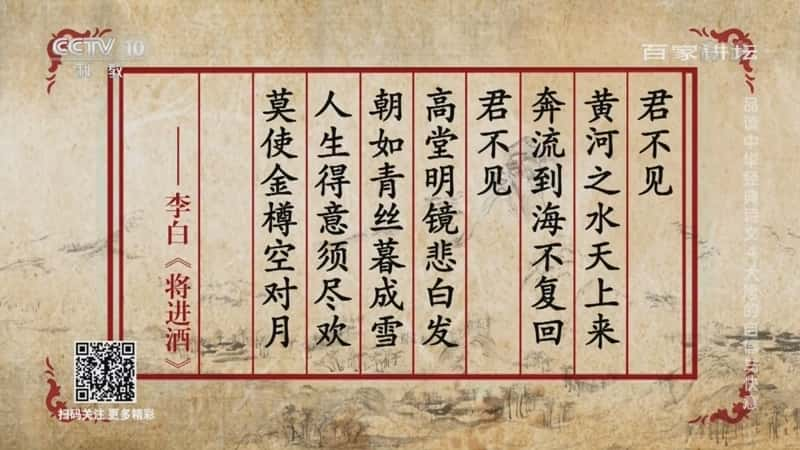 CCTV 10
科 教
百家讲坛
君不见
黄河之水天上来
奔流到海不复回
君不见
高堂明镜悲白发
朝如青丝暮成雪
人生得意须尽欢
莫使金樽空对月
——李白《将进酒》
扫码关注 更多精彩